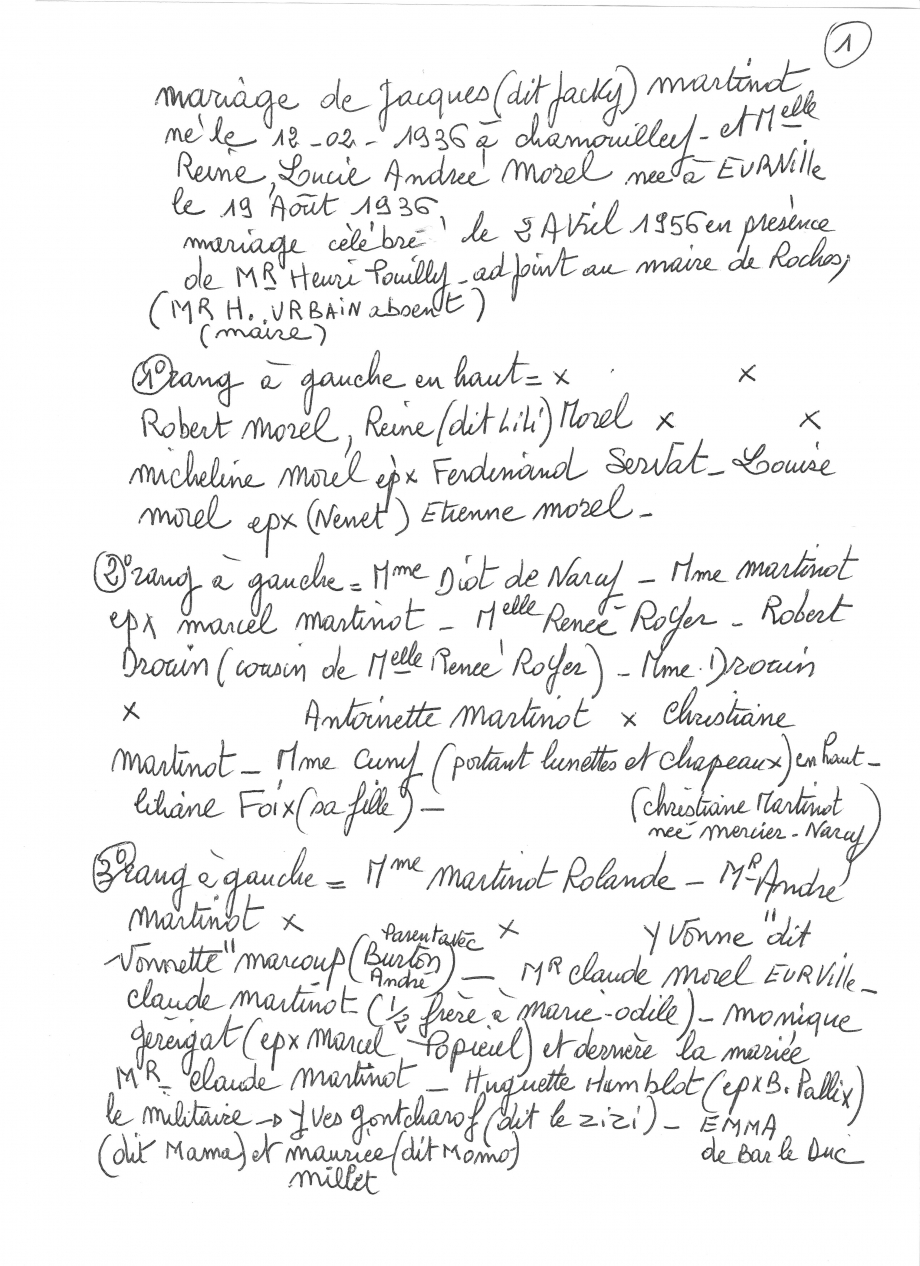 1
mariàge de Jacques (dit Jacky) martinot
né le 12-02-1936 à chamouilley - et Melle
Reine, Lucie Andreé Morel neé à EURVille
le 19 Août 1936,
mariage célèbré le 2 AVril 1956 en présence
de MR Henri Pouilly - adjoint au maire de Roches,
(MR H. URBAIN absent)
(maire)
1° rang à gauche en haut = x x
Robert Morel, Reine (dit Lili) Morel x x
micheline Morel epx Ferdinand Servat - Louise
morel epx (Nenet) Etienne morel -
2° rang à gauche = Mme Diot de Narcy - Mme martinot
epx marcel martinot - Melle Reneé Royer - Robert
Drouin (cousin de Melle Reneé Royer) - Mme Drouin
x Antoinette martinot x Christiane
martinot - Mme Cuny (portant lunettes et chapeaux) en haut -
liliane Foix (sa fille) - (christiane Martinot
neé mercier - Narcy)
3° rang à gauche = Mme martinot Rolande - MR André
martinot x x yvonne "dit
Vonnette" marcoup (Parent avec Burton André) - MR claude Morel EURVille -
claude martinot - (1/2 frère à marie-odile) - monique
gereigat (epx Marcel Popieul) et derrière la mariée
MR claude martinot - Huguette Humblot (epx B. Pallix)
le militaire -> yves gontcharof (dit le zizi) - EMMA
(dit Mama) et maurice (dit Momo) de Bar le Duc
millet